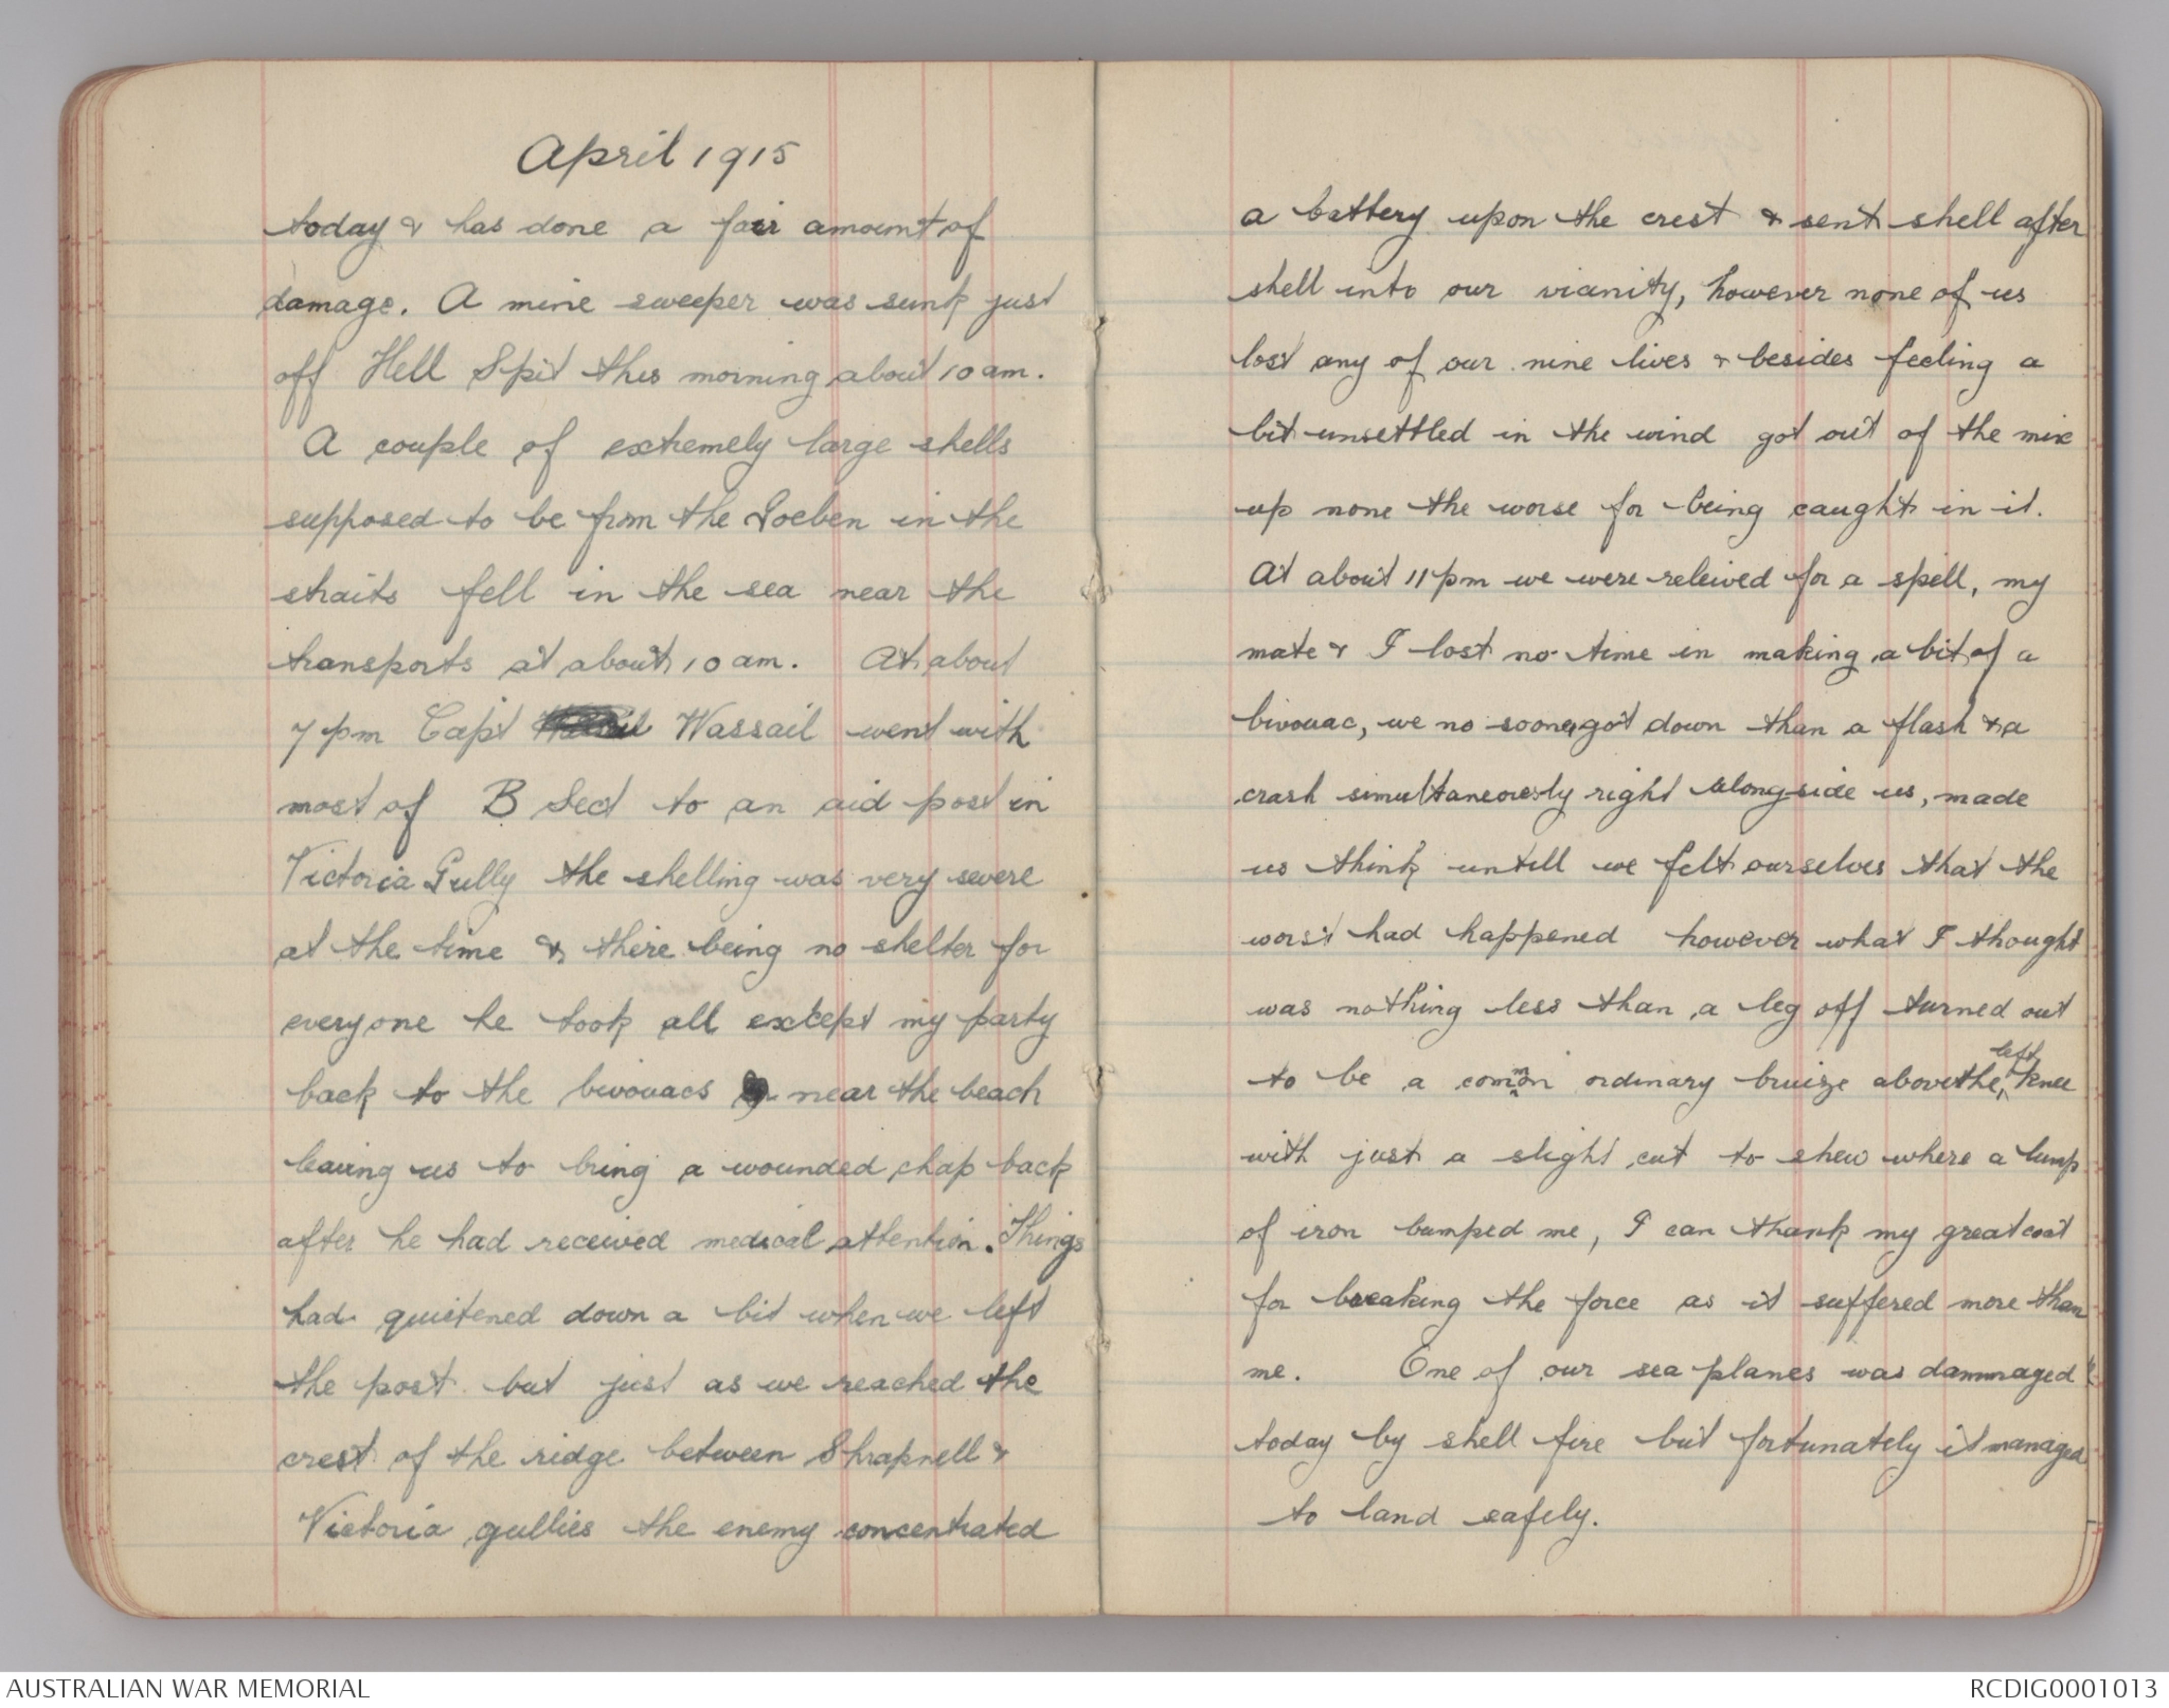 April 1915
today & has done a fair amount of
damage. A mine sweeper was sunk just
off Hell Spit this morning about 10 am.
A couple of extremely large shells
supposed to be from the Goeben in the
straits fell in the sea near the
transports at about 10 am. At about
7 pm Capt Wassail went with
most of B Sect to an aid post in
Victoria Gully the shelling was very severe
at the time & there being no shelter for
everyone he took all except my party
back to the bivouacs near the beach
leaving us to bring a wounded chap back
after he had received medical attention. Things
had quietened down a bit when we left
the post but just as we reached the
crest of the ridge between Shrapnell &
Victoria gullies the enemy concentrated
a battery upon the crest & sent shell after
shell into our vicinity, however none of us
lost any of our nine lives & besides feeling a
bit unsettled in the wind got out of the mix
up none the worse for being caught in it.
At about 11 pm we were releived for a spell, my
mate & I lost no time in making a bit of a
bivouac, we no sooner got down than a flash & a
crash simultaneously right alongside us, made
us think untill we felt ourselves that the
worst had happened however what I thought
was nothing less than a leg off turned out
to be a common ordinary bruize above the left knee
with just a slight cut to shew where a lump
of iron bumped me, I can thank my greatcoat
for breaking the force as it suffered more than
me. One of our sea planes was dammaged
today by shell fire but fortunately it managed
to land safely.
AUSTRALIAN WAR MEMORIAL
RCDIG0001013